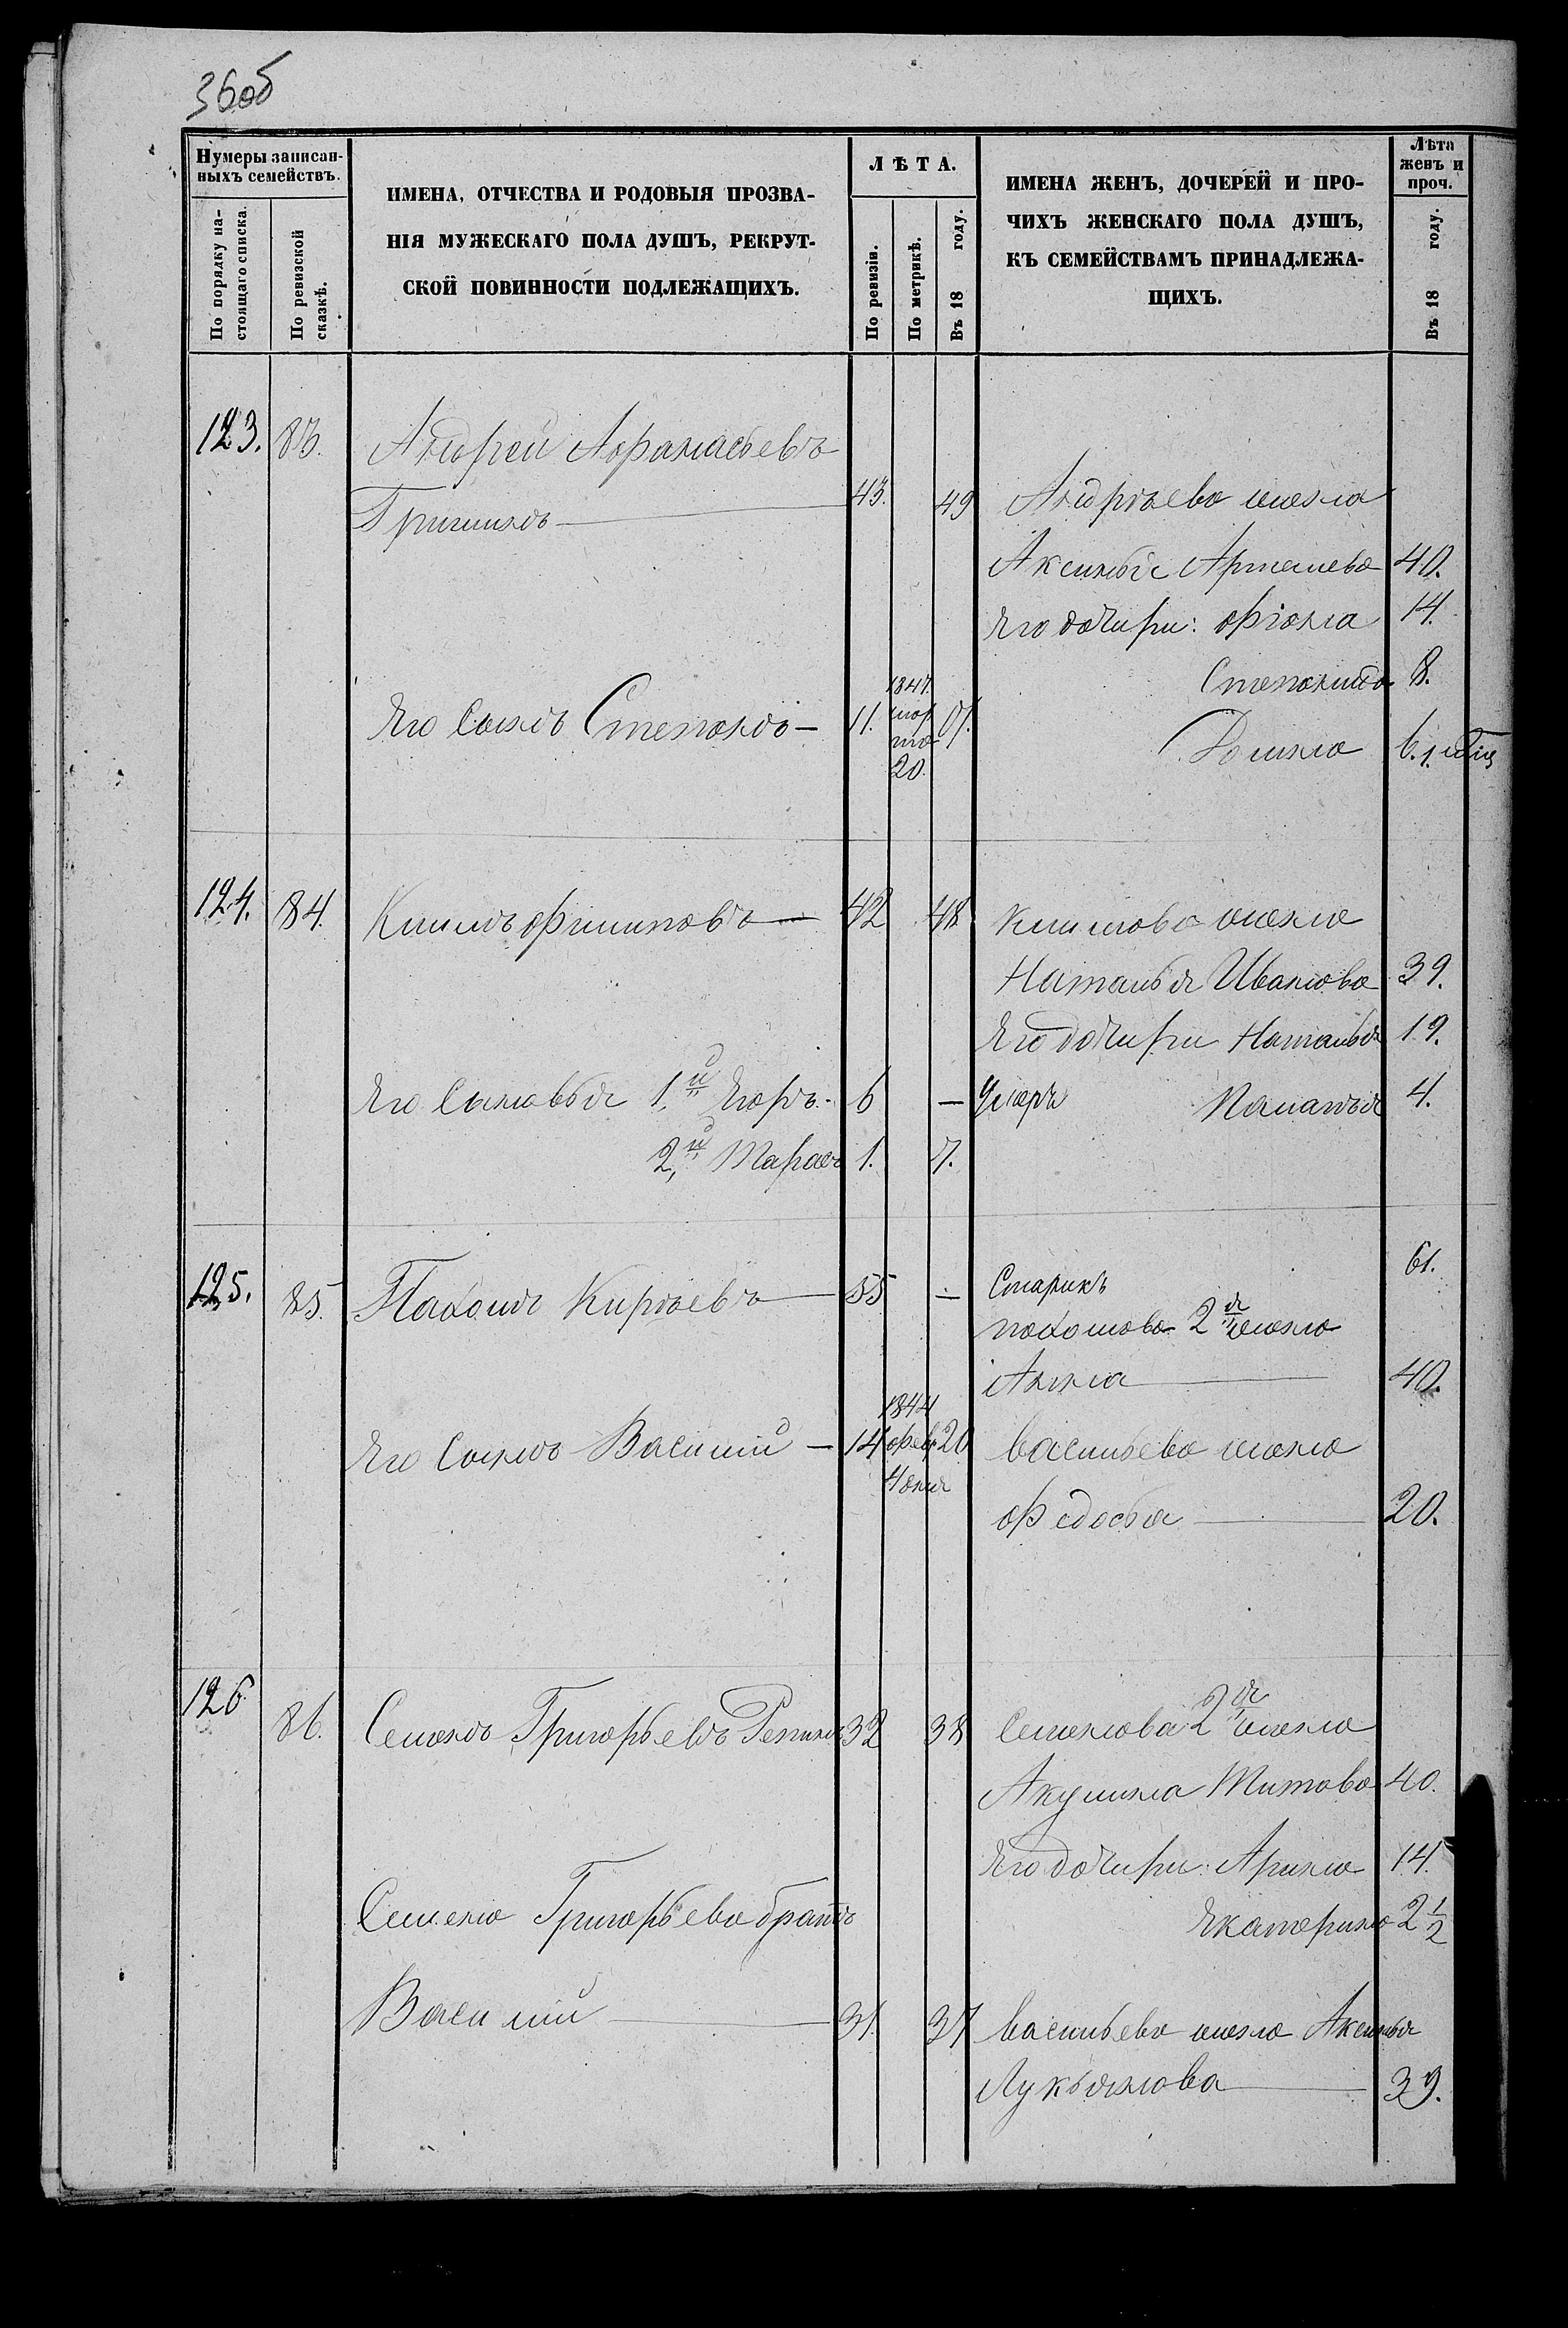 36об
Нумеры записан-
ныхъ семействъ.
По порядку на-
стоящаго списка.
По ревизской
сказкѣ.
ИМЕНА, ОТЧЕСТВА И РОДОВЫЯ ПРОЗВА-
НІЯ МУЖЕСКАГО ПОЛА ДУШЪ, РЕКРУТ-
СКОЙ ПОВИННОСТИ ПОДЛЕЖАЩИХЪ.
ЛѢТА.
По ревизіи.
По метрикѣ.
Въ 18 году.
ИМЕНА ЖЕНЪ, ДОЧЕРЕЙ И ПРО-
ЧИХЪ ЖЕНСКАГО ПОЛА ДУШЪ,
КЪ СЕМЕЙСТВАМЪ ПРИНАДЛЕЖА-
ЩИХЪ.
Лѣта
женъ и
проч.
Въ 18 году.
123. 83. Андрей Афанасьевъ
Гришинъ 43. 49 Андрѣева жена
Аксинья Артемева 40.
Его дочири: Фіона 14.
Степанида 8.
Его Сынъ Степанъ 11. 1847. мар та 20. 17. Домна 6. 1.
124. 84. Климъ Филиповъ 42 48 Климова жена
Наталья Иванова 39.
Его дочири Наталья 19.
Его Сыновья 1й Егоръ 6 — Умеръ Паладья 4.
2й Тарасъ 1. 7.
125. 85. Пахомъ Кирѣевъ 55 — Старикъ 61.
пахомова 2я жена
Анна 40.
Его Сынъ Василій 14 1844 Фев 4 дня 20 васильева жена
Федосья 20.
126 86. Семенъ Григорьевъ Репинъ 32 38 Семенова 2я жена
Акулина Титова 40.
Его дочири: Арина 14.
Екатерина 2 1/2
Семена Григорьева братъ
Василій 31. 37 Васильева жена Аксинья
Лукьянова 39.